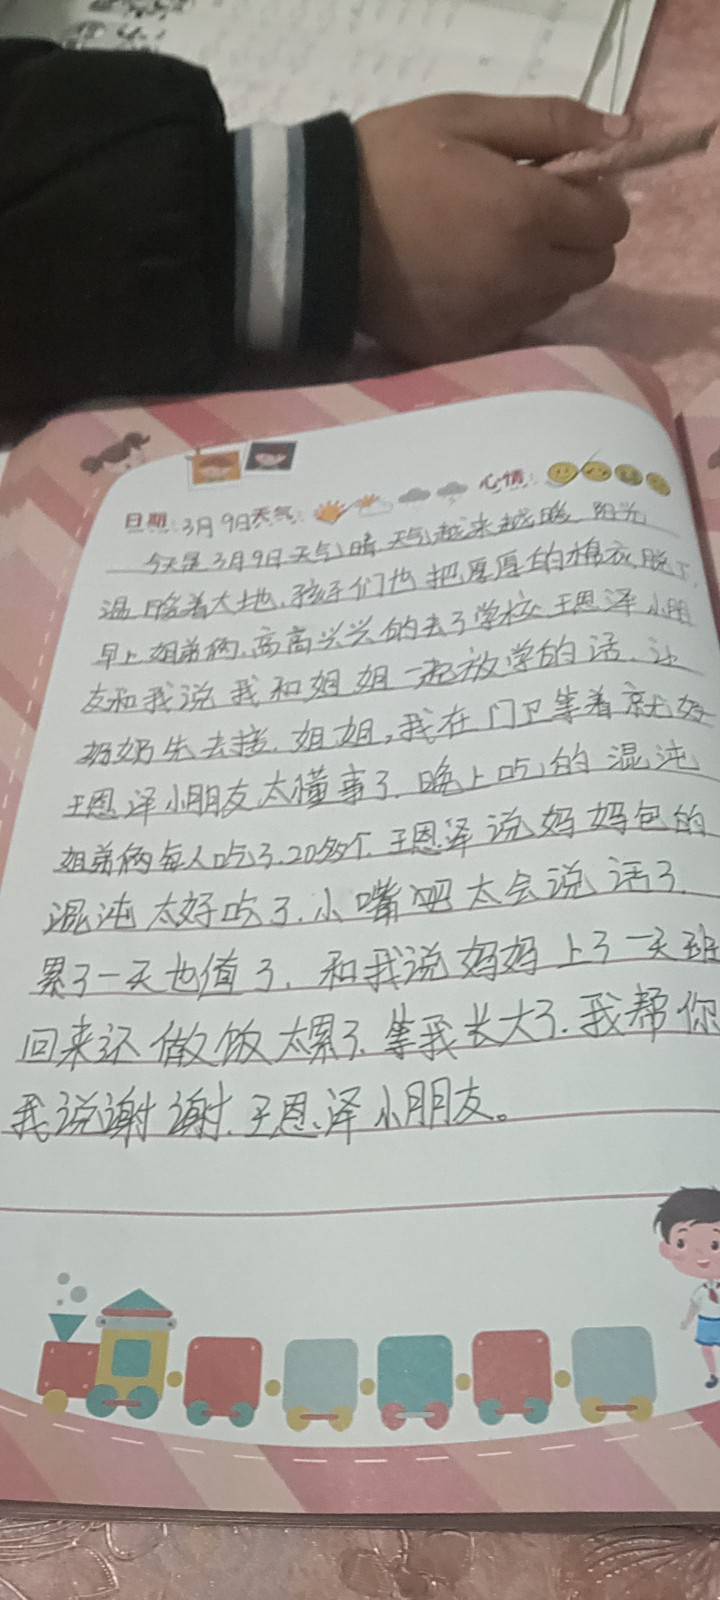 日期:3月9日天气: 心情:
今天是3月9日天气晴天气越来越暖 阳光
温暖着大地.孩子们也把厚厚的棉衣脱下,
早上姐弟俩.高高兴兴的去了学校.王恩泽小朋
友和我说我和姐姐一起放学的话.让
奶奶先去接.姐姐,我在门卫等着就好
王恩泽小朋友太懂事了.晚上吃的混沌
姐弟俩每人吃了.20多个.王恩泽说妈妈包的
混沌太好吃了.小嘴吧太会说话了.
累了一天也值了.和我说妈妈上了一天班
回来还做饭太累了.等我长大了.我帮你
我说谢谢.王恩泽小朋友。